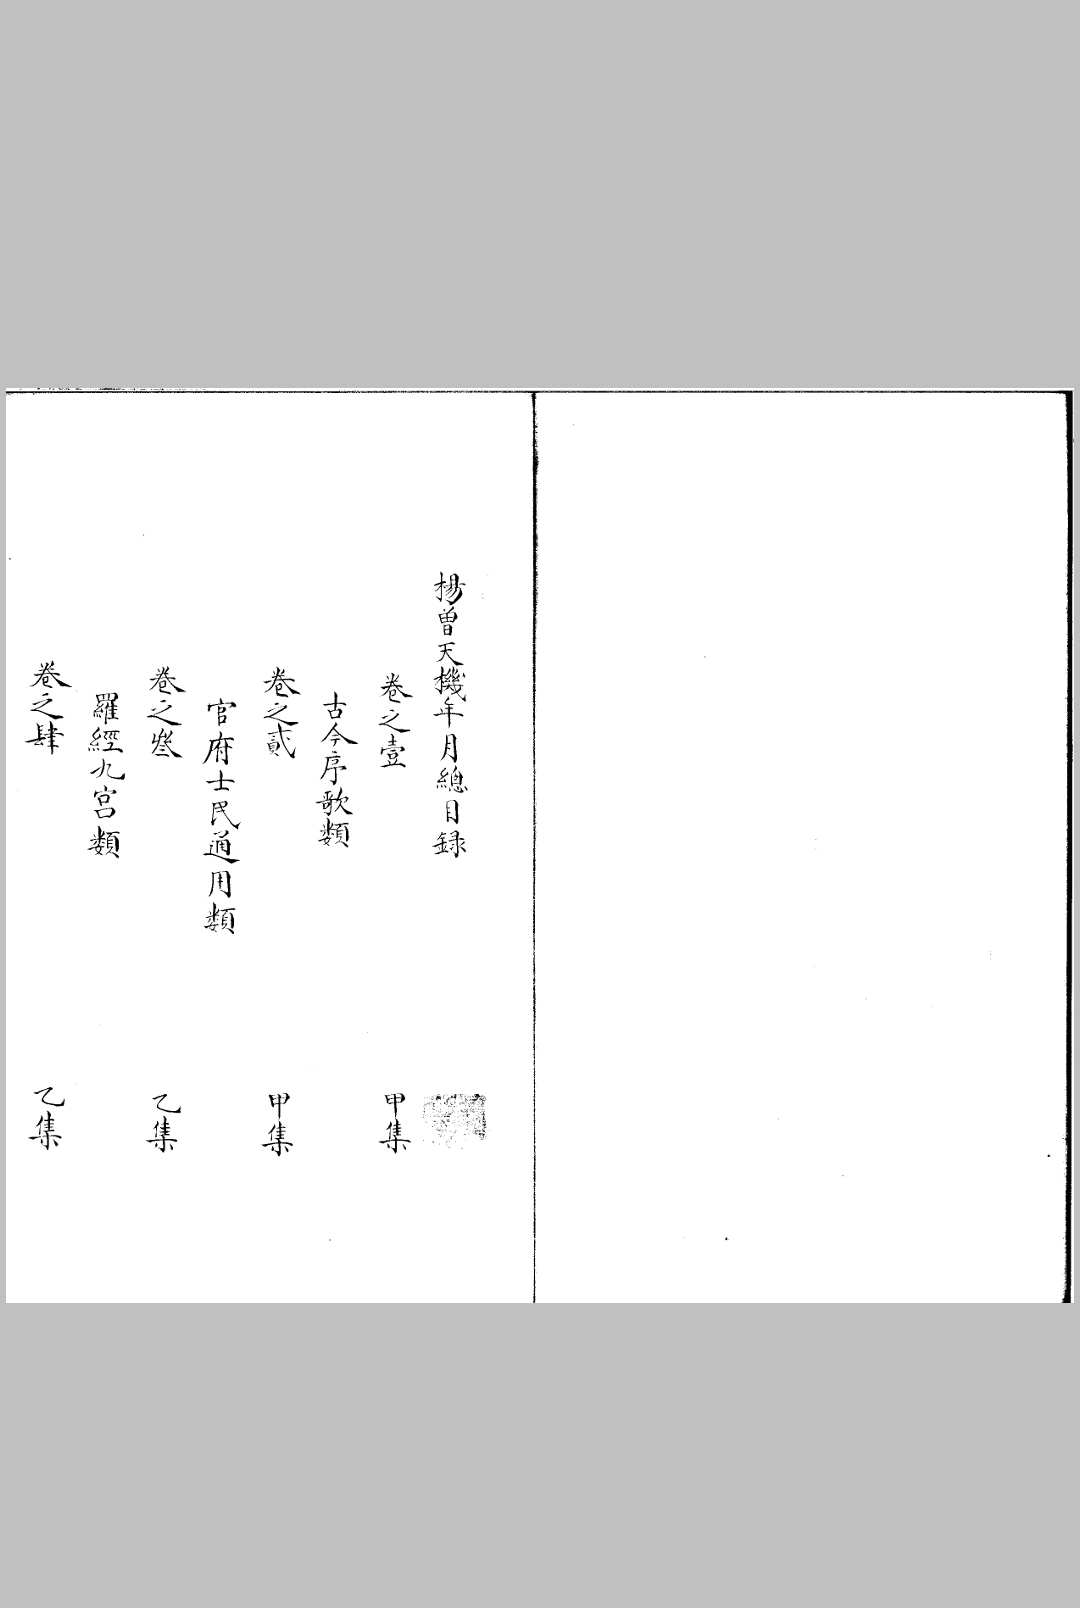 楊曾天機年月總目録
卷之壹 甲集
古今序歌類
卷之貳 甲集
官府士民通用類
卷之叁 乙集
羅經九宫類
卷之肆 乙集